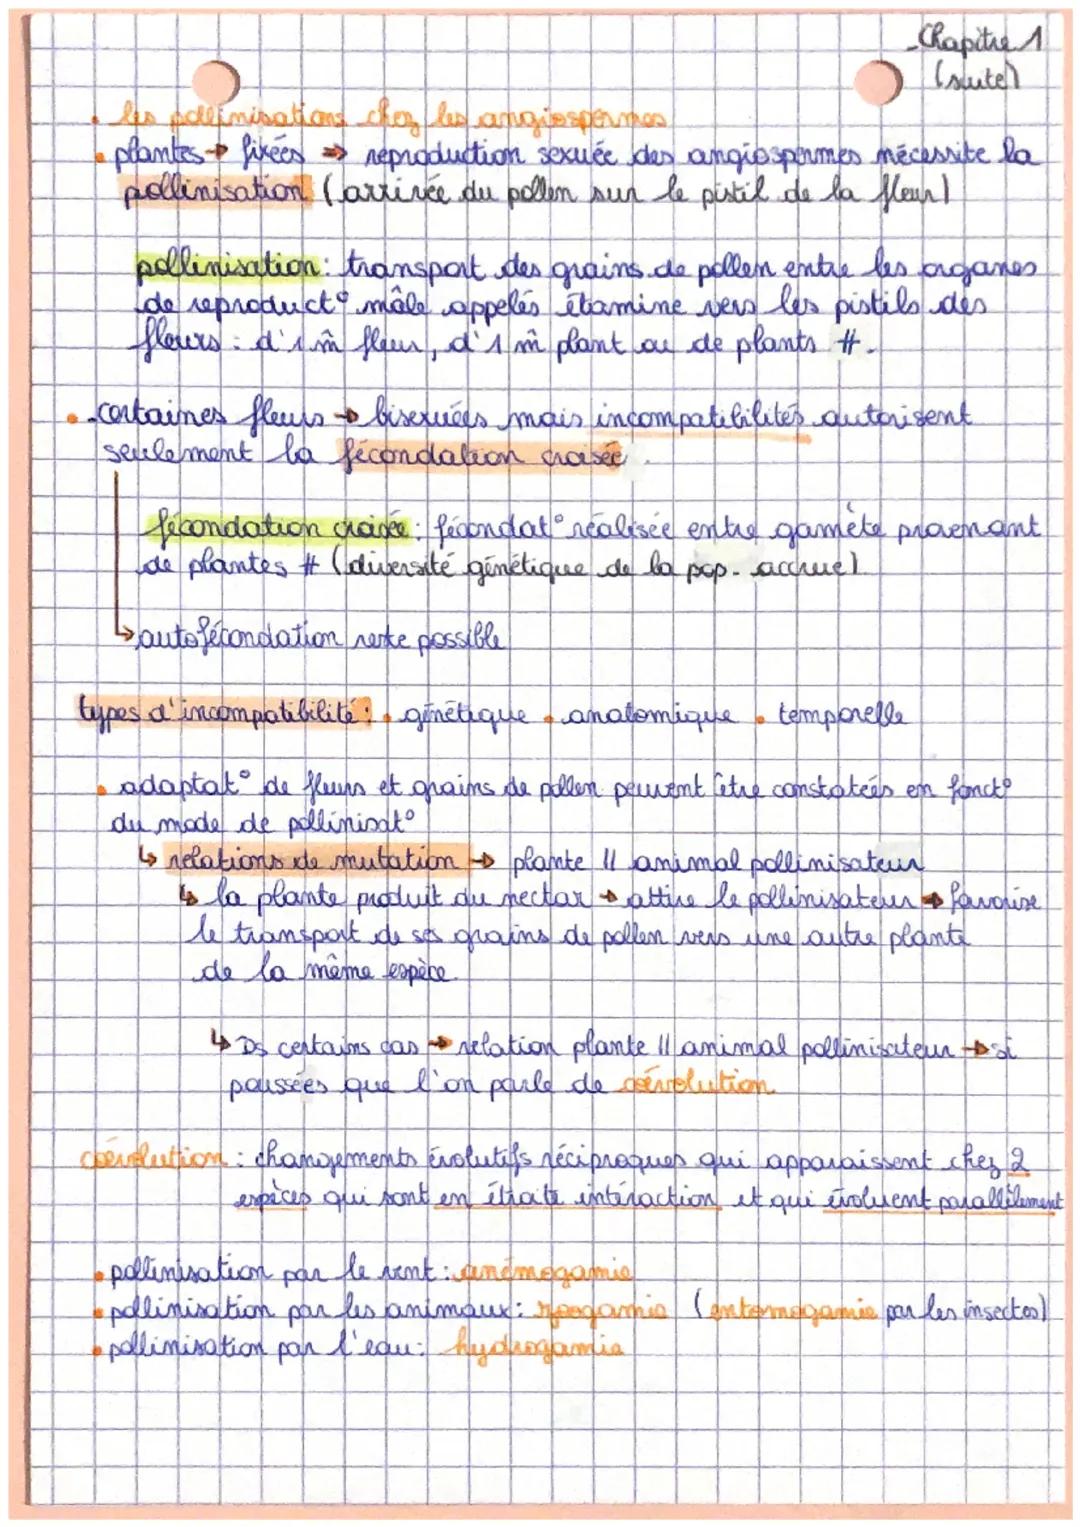 - Chapitre 1
(suite)
• les pollinisations chez les angiospermes
• plantes → fixées ⇒ reproduction sexuée des angiospermes nécessite la
pollinisation (arrivée du pollen sur le pistil de la fleur)
pollinisation : transport des grains de pollen entre les organes
de reproduct° mâle appelés étamine vers les pistils des
fleurs : d'1 m̂ fleur, d'1 m̂ plant ou de plants #.
• certaines fleurs → bisexuées mais incompatibilités autorisent
seulement la fécondation croisée.
fécondation croisée : fécondat° réalisée entre gamète provenant
de plantes # (diversité génétique de la pop. accrue)
↳ autofécondation reste possible
types d'incompatibilité : • génétique • anatomique • temporelle
• adaptat° de fleurs et grains de pollen peuvent être constatées en fonct°
du mode de pollinisat°
↳ relations de mutation → plante // animal pollinisateur
↳ la plante produit du nectar → attire le pollinisateur → favorise
le transport de ses grains de pollen vers une autre plante
de la même espèce.
↳ Ds certains cas → relation plante // animal pollinisateur → si
poussées que l'on parle de coévolution.
coévolution : changements évolutifs réciproques qui apparaissent chez 2
espèces qui sont en étroite intéraction et qui évoluent parallèlement
• pollinisation par le vent : anémogamie
• pollinisation par les animaux : zoogamie (entomogamie par les insectes)
• pollinisation par l'eau : hydrogamie